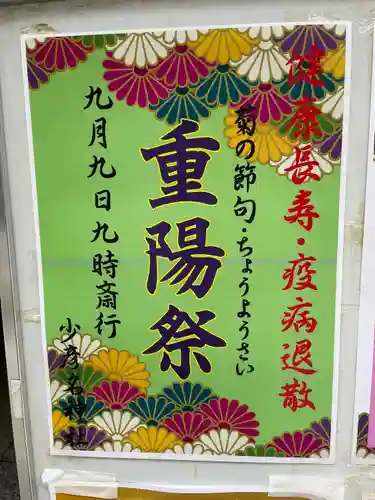 健康長寿・疫病退散
菊の節句・ちょうようさい
重陽祭
九月九日九時斎行
少彦名神社